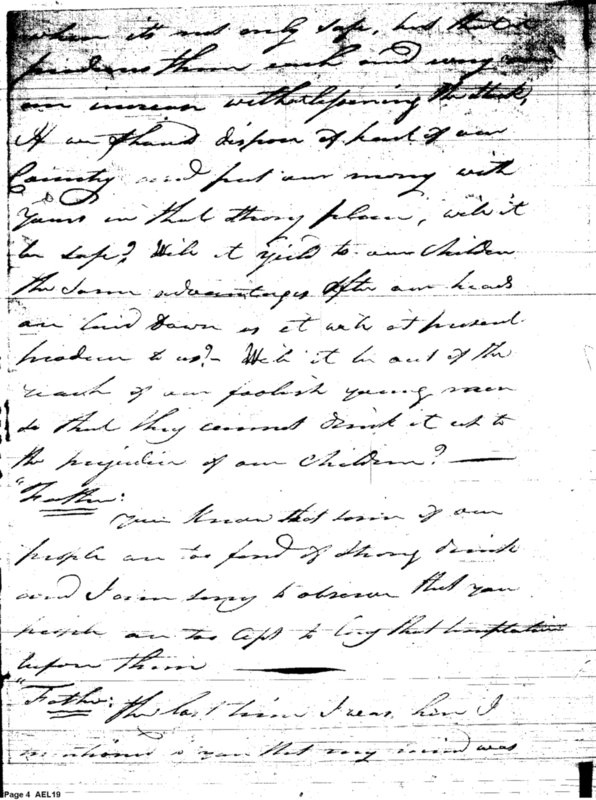 where its not only safe, but that it
produces them each and every year
an increase without lessening the Stock,
If we should dispose of part of our
Country and put our money with
yours in that strong place, will it
be safe? Will it yield to our Children
the same advantages after our heads
are laid down as it will at present
produce to us?- Will it be out of the
reach of our foolish young men
so that they cannot drink it up to
the prejudice of our Children?
"Father:
You Know that some of our
people are too fond of strong drink
and I am sorry to observe that you
people are too apt to lay that temptation
before them
"Father: the last time I was here I
mentioned to you that my mind was
Page 4 AEL19